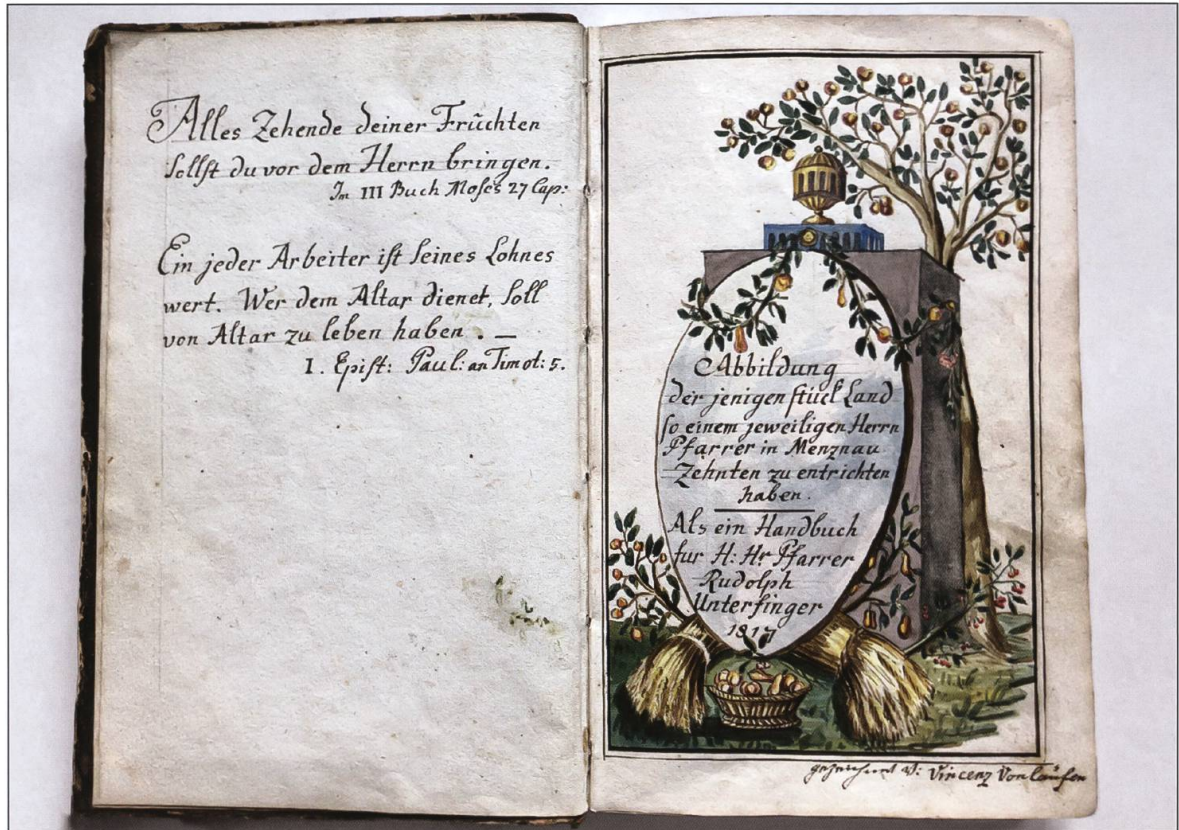 Alles Zehende deiner Früchten
sollst du vor dem Herrn bringen.
Im III Buch Moses 27 Cap:
Ein jeder Arbeiter ist seines Lohnes
wert. Wer dem Altar dienet, soll
von Altar zu leben haben . —
I. Epist: Paul: an Timot: 5.
Abbildung
der jenigen stück Land
so einem jeweiligen Herrn
Pfarrer in Menznau
Zehnten zu entrichten
haben.
Als ein Handbuch
fur H: Hr Pfarrer
Rudolph
Unterfinger
1817
gezeichnet V: Vincenz Von laüfen